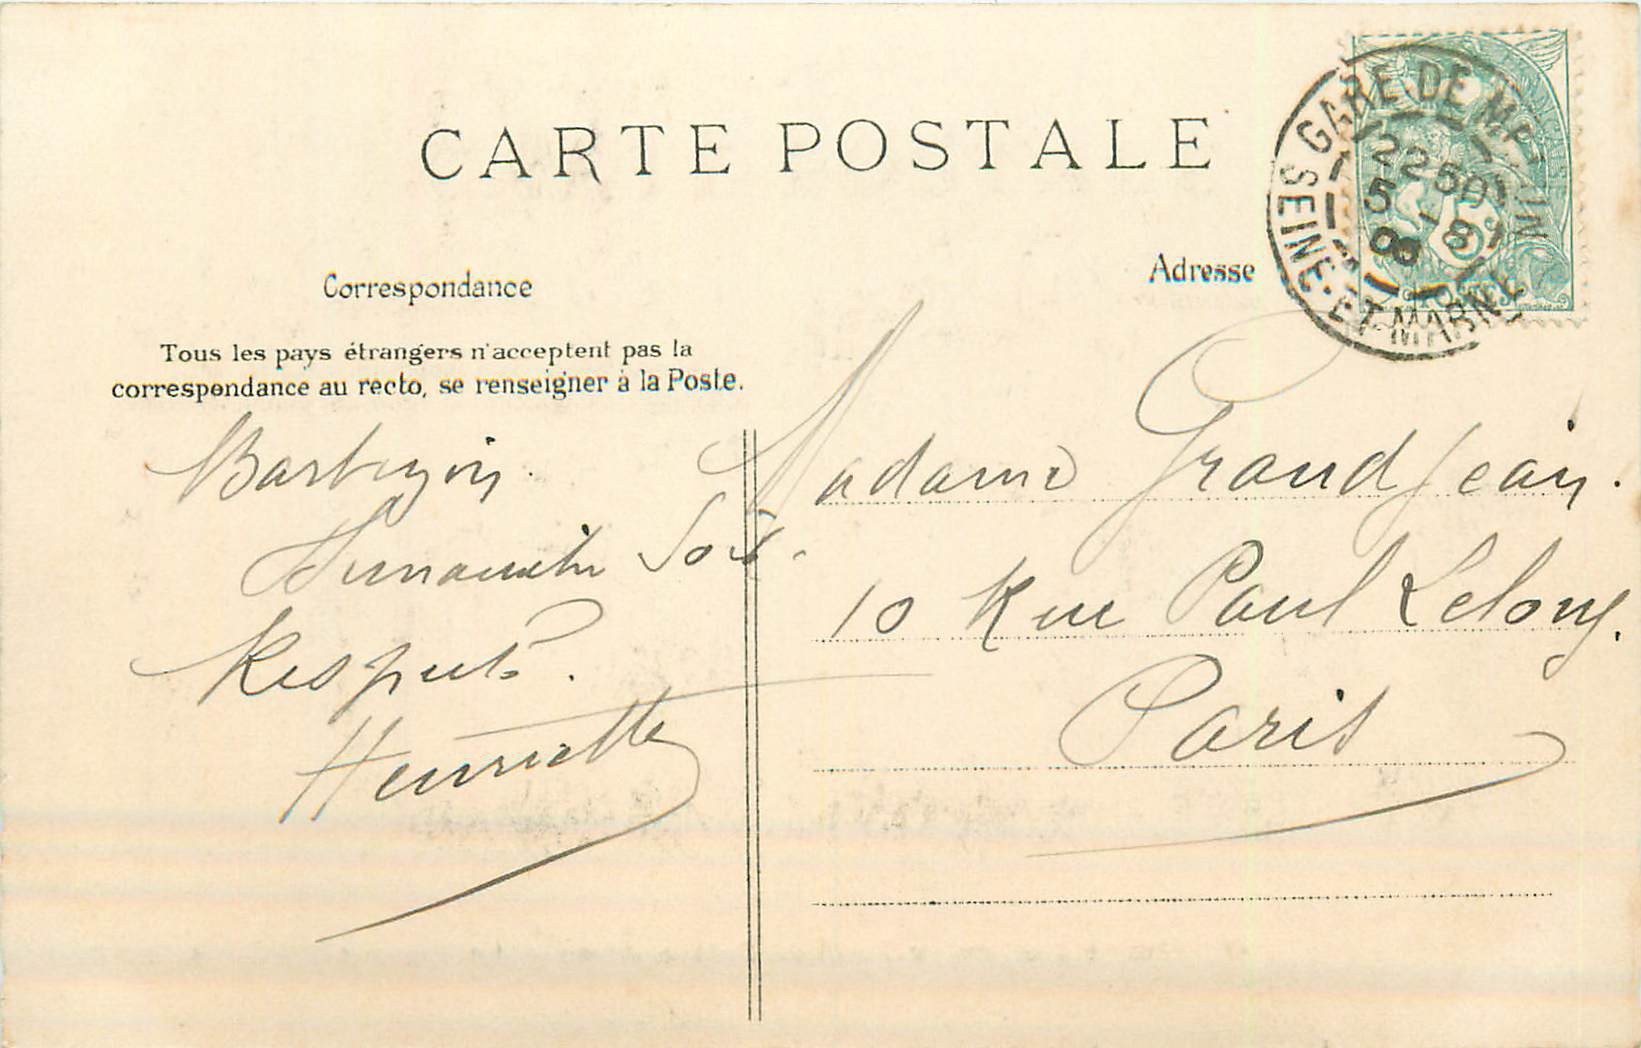 CARTE POSTALE
Correspondance
Tous les pays étrangers n'acceptent pas la
correspondance au recto, se renseigner à la Poste.
Barbizon.
Dimanche Soir.
Respects.
Henriette
Adresse
Madame Grandjean.
10 Rue Paul Lelong.
Paris
GARE DE M
SEINE-ET-MARNE
22 50
5 - 8
POSTES